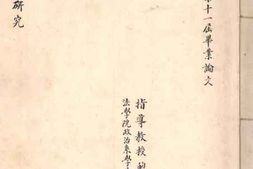 十一屆畢業論文
指導教授
法學院政治系學
研究